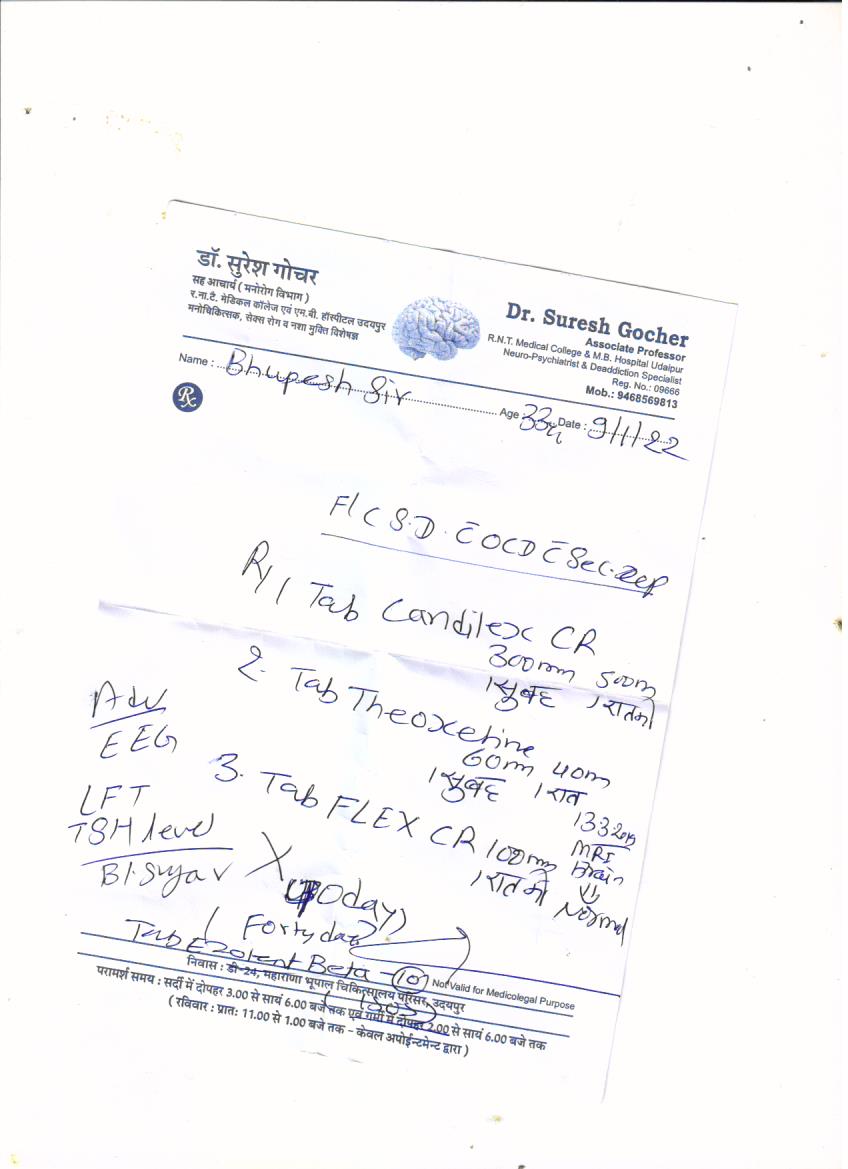 डॉ. सुरेश गोचर
सह आचार्य ( मनोरोग विभाग )
र.ना.टै. मेडिकल कॉलेज एवं एम.बी. हॉस्पीटल उदयपुर
मनोचिकित्सक, सेक्स रोग व नशा मुक्ति विशेषज्ञ
Dr. Suresh Gocher
Associate Professor
R.N.T. Medical College & M.B. Hospital Udaipur
Neuro-Psychiatrist & Deaddiction Specialist
Reg. No.: 09666
Mob.: 9468569813
Name : Bhupesh Sir Age 33 Date : 9/1/22
Rx
F/C S.D. c̄ OCD c̄ Sec.
R/ 1 Tab Candilex CR
300 500
1 सुबह 1 रात को
2. Tab Theoxetine
60 40
1 सुबह 1 रात
3. Tab FLEX CR 100
1 रात को
Adv
EEG
LFT
TSH level
Bl. Sugar
13.3.2019
MRI
Brain
Normal
X 40 day)
( Forty day)
Tab Beta - 10
Not Valid for Medicolegal Purpose
निवास : डी-24, महाराणा भूपाल चिकित्सालय परिसर, उदयपुर
परामर्श समय : सर्दी में दोपहर 3.00 से सायं 6.00 बजे तक एवं गर्मी में दोपहर 2.00 से सायं 6.00 बजे तक
( रविवार : प्रातः 11.00 से 1.00 बजे तक - केवल अपोईन्टमेन्ट द्वारा )